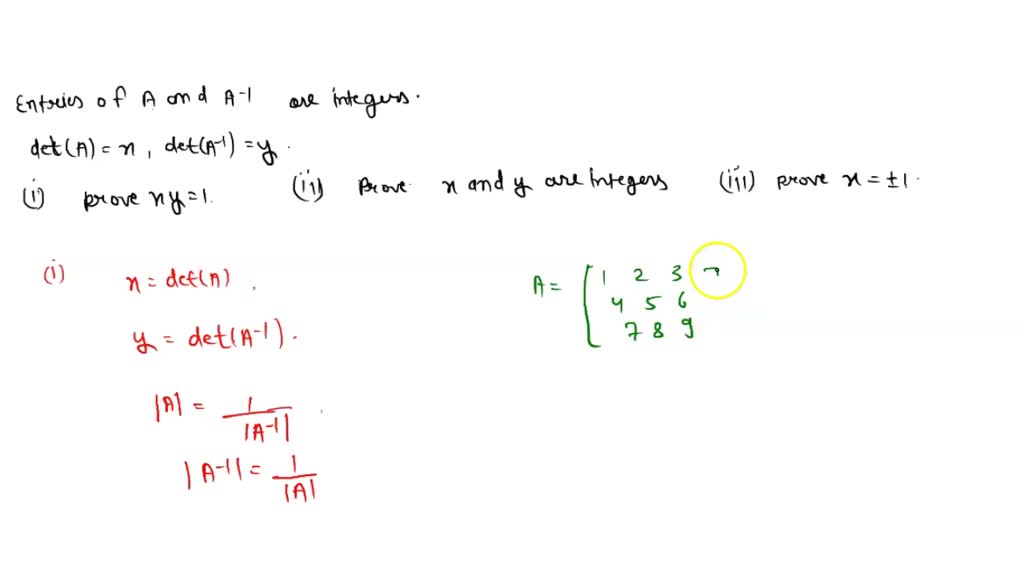 Entries of A and A-1 are integers.
det(A) = x, det(A-1) = y.
(i) prove xy=1. (ii) Prove x and y are Integers (iii) prove x = ±1.
(i) x = det(A).
y = det(A-1).
|A| = 1/|A-1|
|A-1| = 1/|A|
A = [ 1 2 3
4 5 6
7 8 9